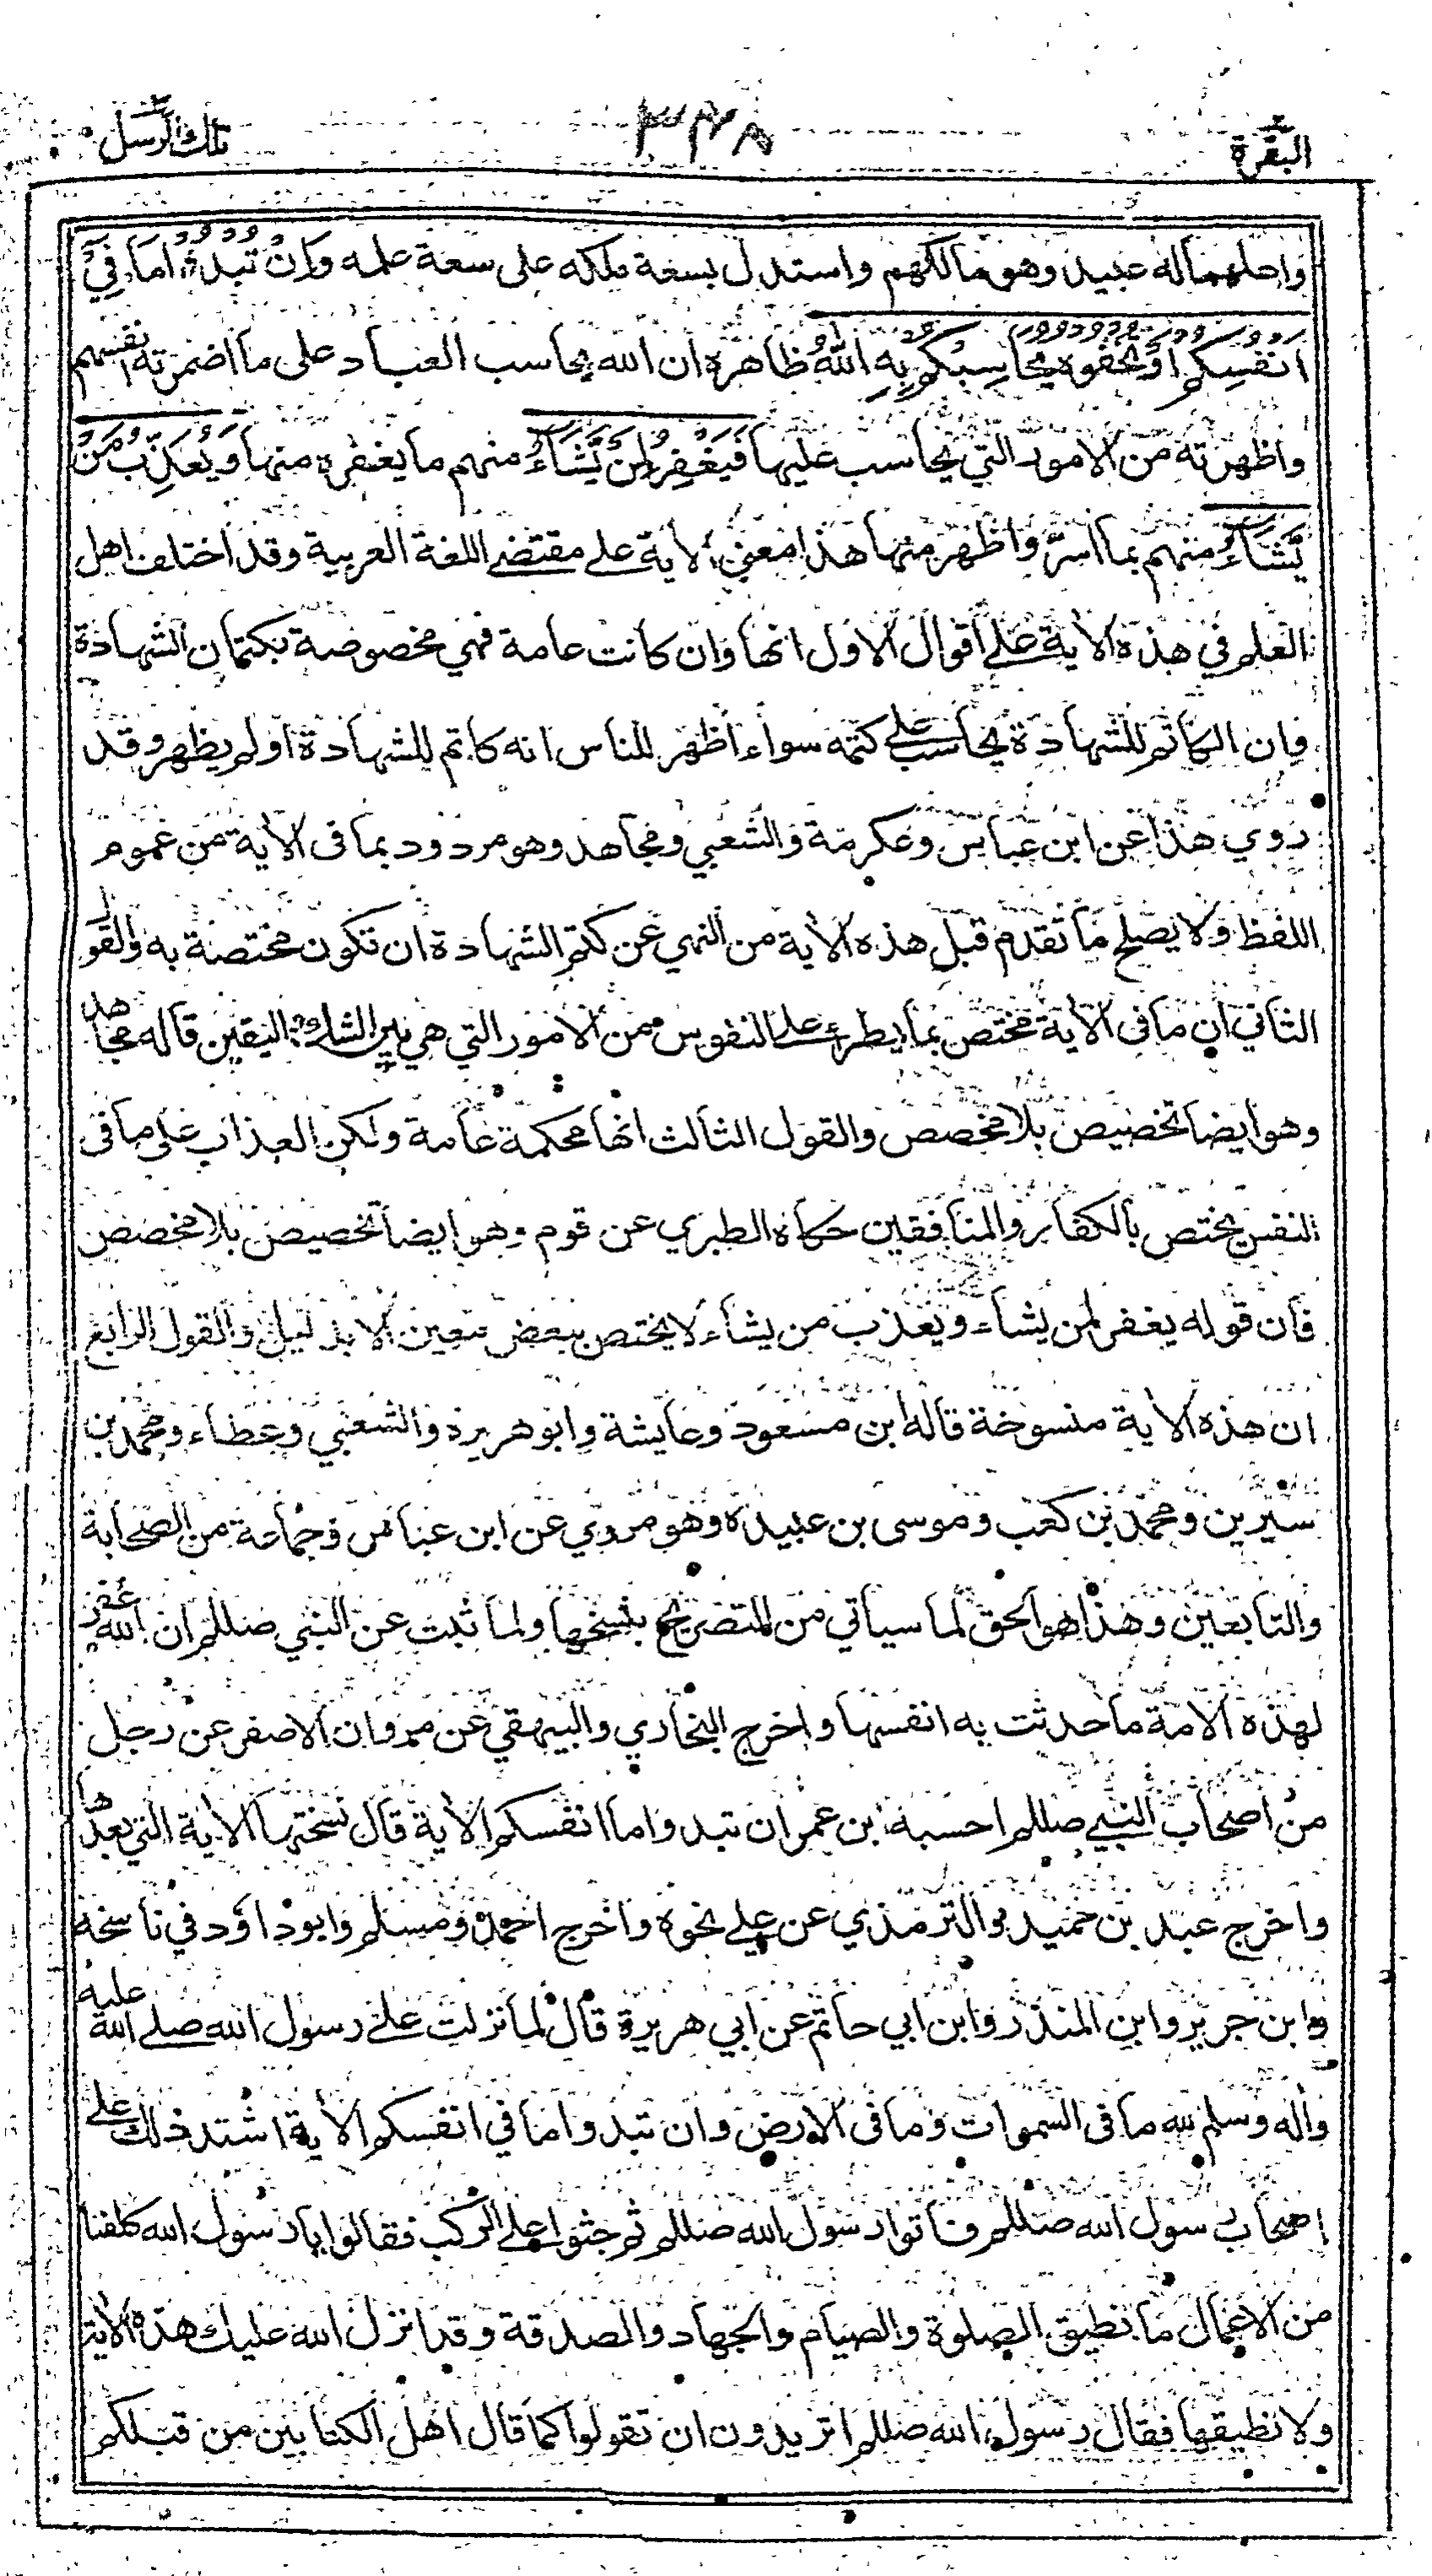 البقرة
٣٣٨
تلك الرسل
واهلهما له عبيد وهو مالكهم واستدل بسعة ملكه على سعة علمه وَاِنْ تُبْدُوْا مَا فِيْٓ
اَنْفُسِكُمْ اَوْ تُخْفُوْهُ يُحَاسِبْكُمْ بِهِ اللّٰهُ ظاهره ان الله يحاسب العباد على ما اضمرته انفسهم
واظهرته من الامور التي يحاسب عليها فَيَغْفِرُ لِمَنْ يَّشَآءُ منهم ما يغفره منها وَيُعَذِّبُ مَنْ
يَّشَآءُ منهم بما اسرّ واظهر منها هذا معنى الأية على مقتضى اللغة العربية وقد اختلف اهل
العلم في هذه الأية على اقوال الاول انها وان كانت عامة فهي مخصوصة بكتمان الشهادة
فان الكاتم للشهادة يحاسب على كتمه سواء اظهر للناس انه كاتم للشهادة او لم يظهر وقد
روي هذا عن ابن عباس وعكرمة والشعبي ومجاهد وهو مردود بما في الأية من عموم
اللفظ ولا يصلح ما تقدم قبل هذه الأية من النهي عن كتم الشهادة ان تكون مختصة به والقول
الثاني ان ما في الأية مختص بما يطرء على النفوس من الامور التي هي بين الشك واليقين قاله مجاهد
وهو ايضا تخصيص بلا مخصص والقول الثالث انها محكمة عامة ولكن العذاب على ما في
النفس يختص بالكفار والمنافقين حكاه الطبري عن قوم وهو ايضا تخصيص بلا مخصص
فان قوله يغفر لمن يشاء ويعذب من يشاء لا يختص ببعض معين الا بدليل والقول الرابع
ان هذه الأية منسوخة قاله ابن مسعود وعايشة وابو هريرة والشعبي وعطاء ومحمد بن
سيرين ومحمد بن كعب وموسى بن عبيدة وهو مروي عن ابن عباس وجماعة من الصحابة
والتابعين وهذا هو الحق لما سيأتي من التصريح بنسخها ولما ثبت عن النبي صللم ان الله غفر
لهذه الامة ما حدثت به انفسها واخرج البخاري والبيهقي عن مروان الاصفر عن رجل
من اصحاب النبي صللم احسبه ابن عمر ان تبدوا ما انفسكم الأية قال نسختها الأية التي بعدها
واخرج عبد بن حميد والترمذي عن علي نحوه واخرج احمد ومسلم وابو داود في ناسخه
وابن جرير وابن المنذر وابن ابي حاتم عن ابي هريرة قال لما نزلت على رسول الله صلى الله عليه
وأله وسلم لله ما في السموات وما في الارض وان تبدوا ما في انفسكم الأية اشتد ذلك على
اصحاب رسول الله صللم فأتوا رسول الله صللم ثم جثوا على الركب فقالوا يا رسول الله كلفنا
من الاعمال ما نطيق الصلوة والصيام والجهاد والصدقة وقد انزل الله عليك هذه الأية
ولا نطيقها فقال رسول الله صللم اتريدون ان تقولوا كما قال اهل الكتابين من قبلكم